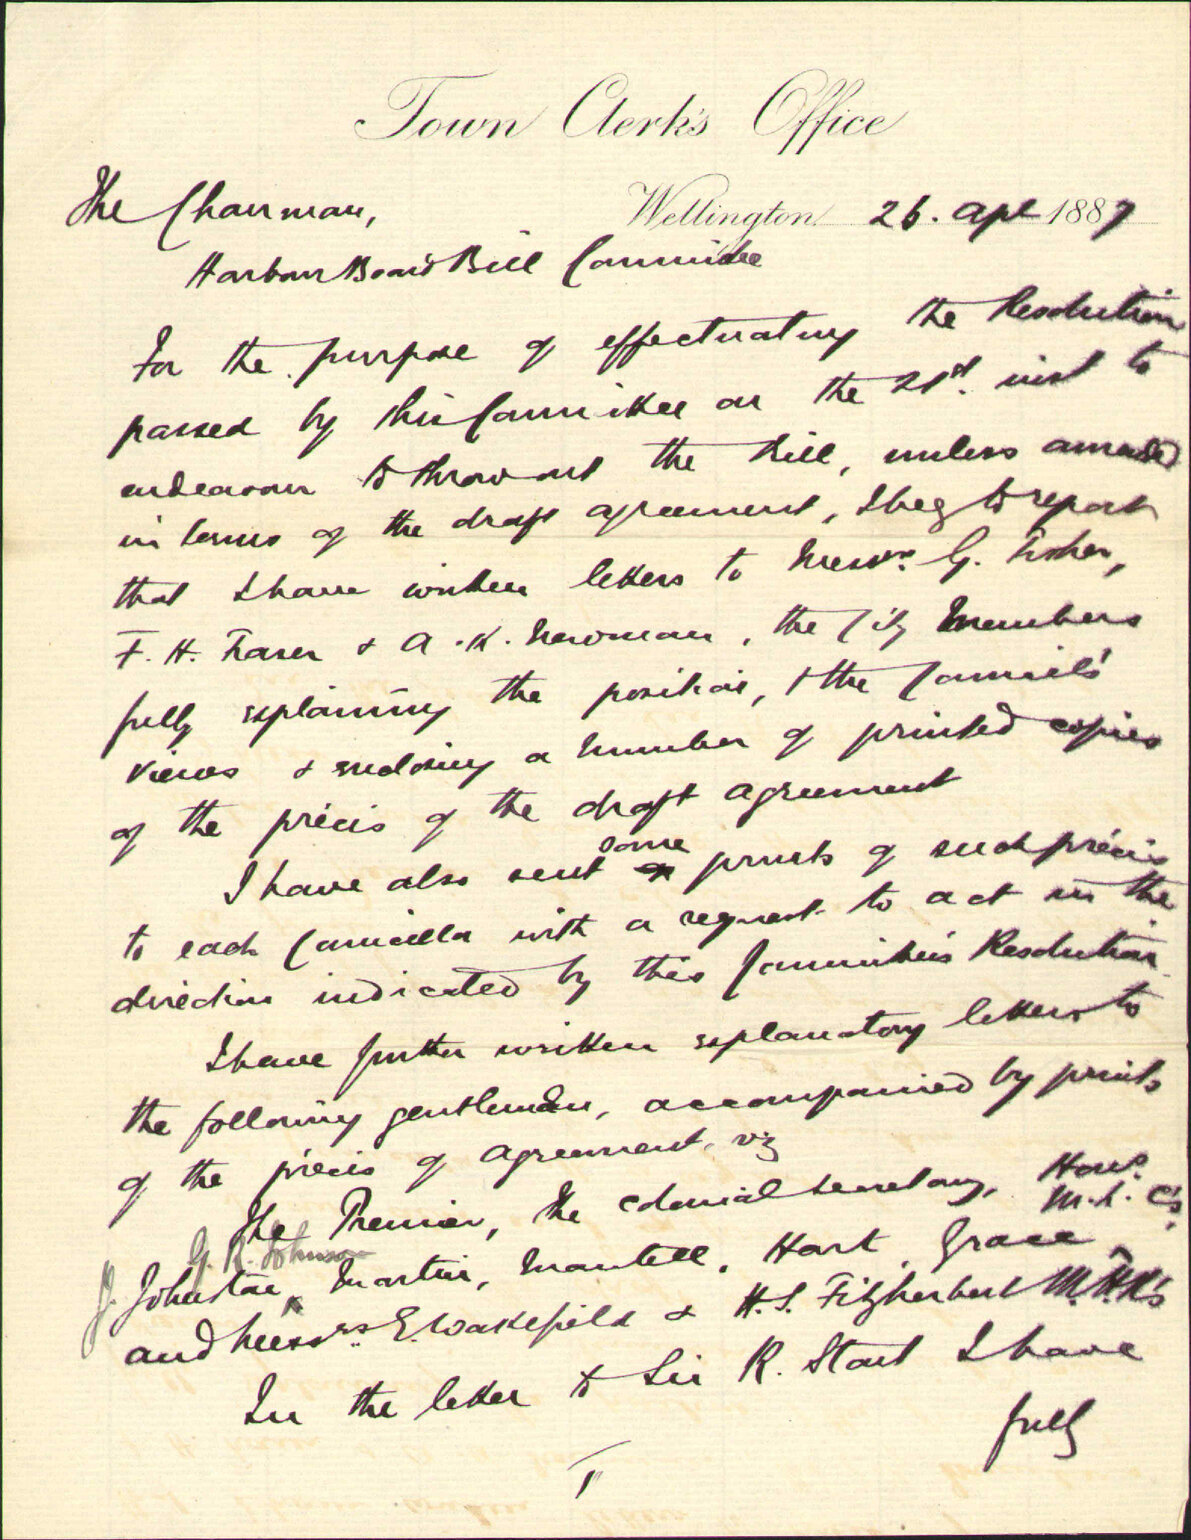 Town Clerk's Office
Wellington 26. Apl 1887
The Chairman,
Harbour Board Bill Committee
For the purpose of effectuating the Resolution
passed by this Committee on the 21st. inst to
endeavour to throw out the Bill, unless amended
in terms of the draft agreement, I beg to report
that I have written letters to Messrs. G. Fisher,
F. H. Fraser & A. K. Newman, the City Members
fully explaining the position, & the Council's
views & enclosing a number of printed copies
of the précis of the draft agreement
I have also sent some prints of such précis
to each Councillor with a request to act in the
direction indicated by this Committee's Resolution
I have further written explanatory letters to
the following gentlemen, accompanied by prints
of the précis of agreement, viz
The Premier, the Colonial Secretary, Hons.
M.L.C's,
G. R. Johnson
J. Johnston, Martin, Mantell, Hart, Grace
and Messrs. E. Wakefield & H. S. Fitzherbert M.H.R's
In the letter to Sir R. Stout I have
fully